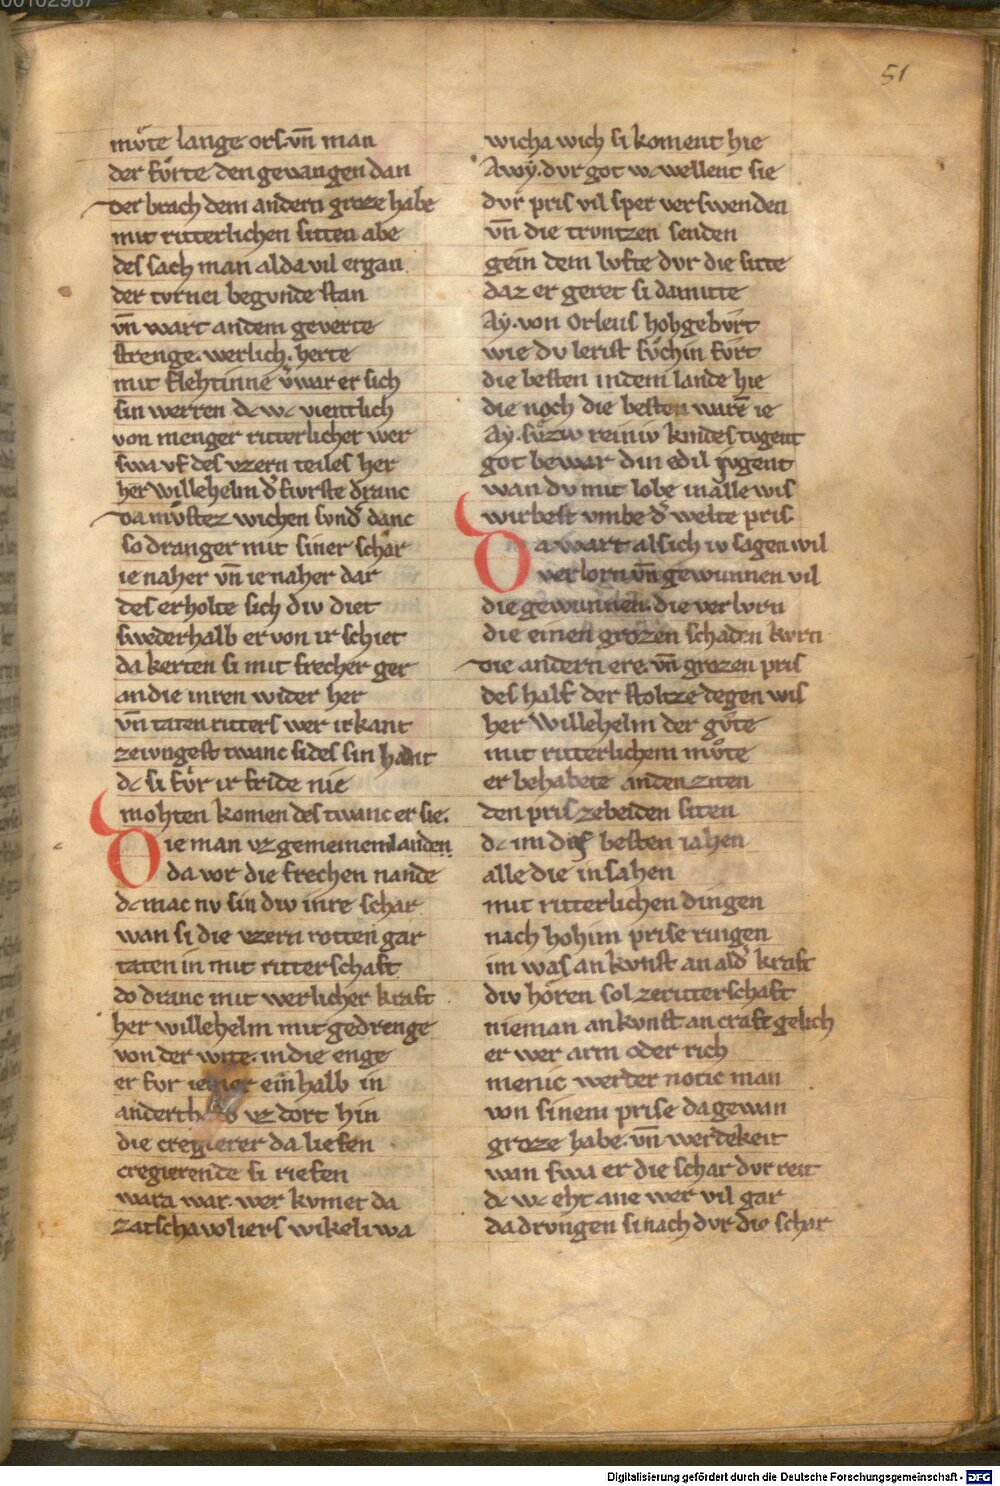 51
mv̊te lange ors. vn̄ man
der fv̊rte den gevangen dan
der brach dem andern groze habe
mit ritterlichen sitten abe
des sach man alda vil ergan
der tvrnei begvnde stan
vn̄ wart an dem geverte
strenge. werlich. herte
mit
sin werren dc wc vientlich
von meniger ritterlicher wer
swa vf des vzern teiles her
her Willehelm d͛ fvrste dranc
da mv̊stez wichen svnd͛ danc
so dranger mit siner schar
ie naher vn̄ ie naher dar
des erholte sich div diet
swederhalb er von ir schiet
da kerten si mit frecher ger
an die inren wider her
vn̄ taten ritters wer irkant
ze ivngest twanc si des sin hant
dc si fv̊r ir fride nie
mohten komen des twanc er sie.
Die man vz gemeinem landen
da vor die frechen nande
dc mac nv sin div inre schar
wan si die vzern rotten gar
taten in mit ritterschaft
do dranc mit werlicher kraft
her willehelm mit gedrenge
von der wite. in die enge
er fvr ein halb in
vz dort hin
die cregierer da liefen
cregierende si riefen
wara war. wer kvmet da
zatschavoliers wikeli wa
wicha wich si koment hie
Awẏ. dvr got wc wellent sie
dvr pris vil sper verswenden
vn̄ die trvntzen senden
gein dem lvfte dvr die sitte
daz er geret si da mitte
Aẏ. von Orleus hohgebv̊rt
wie dv lerist fv̊chin fv̊rt
die besten in dem lande hie
die noch die besten warē ie
Aẏ. sv̊ziv reiniv kindes tvgent
got bewar din edil ivgent
wan dv mit lobe in alle wis
wirbest vmbe d͛ welte pris
Da wart als ich iv sagen wil
verlorn vn̄ gewunnen vil
die gewunnen. die verlvrn
die einen grozen schaden kvrn
die andern ere. vn̄ grozen pris
des half der stoltze degen wis
her Willehelm der gv̊te
mit ritterlichem mv̊te
er behabete an den ziten
den pris ze beiden siten
dc im des besten iahen
alle die in sahen
mit ritterlichen dingen
nach hohim prise ringen
im was an kvnst an ald͛ kraft
div hören sol ze ritterschaft
nieman an kvnst an craft gelich
er wer arm oder rich
menic werder notic man
von sinem prise da gewan
groze habe. vn̄ werdekeit
wan swa er die schar dvr reit
dc wc eht ane wer vil gar
da drvngen si nach dvr die schar
Digitalisierung gefördert durch die Deutsche Forschungsgemeinschaft - DFG